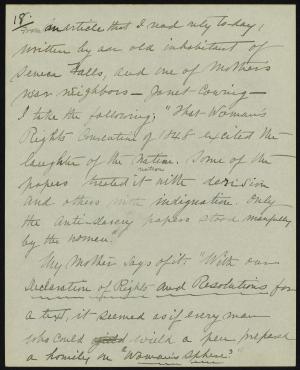 18.
From an article that I read only to-day,
written by an old inhabitant of
Seneca Falls, and one of Mothers
near neighbors – Janet Cowing –
I take the following; "That Woman's
Rights Convention of 1848 excited the
laughter of the nation. Some of the
papers treated it with derision
and others with indignation. Only
the Anti-slavery papers stood manfully
by the women."
My Mother says of it: "With our
Declaration of Rights and Resolutions for
a text, it seemed as if every man
who could wield a pen prepared
a homily on "Woman's Sphere."